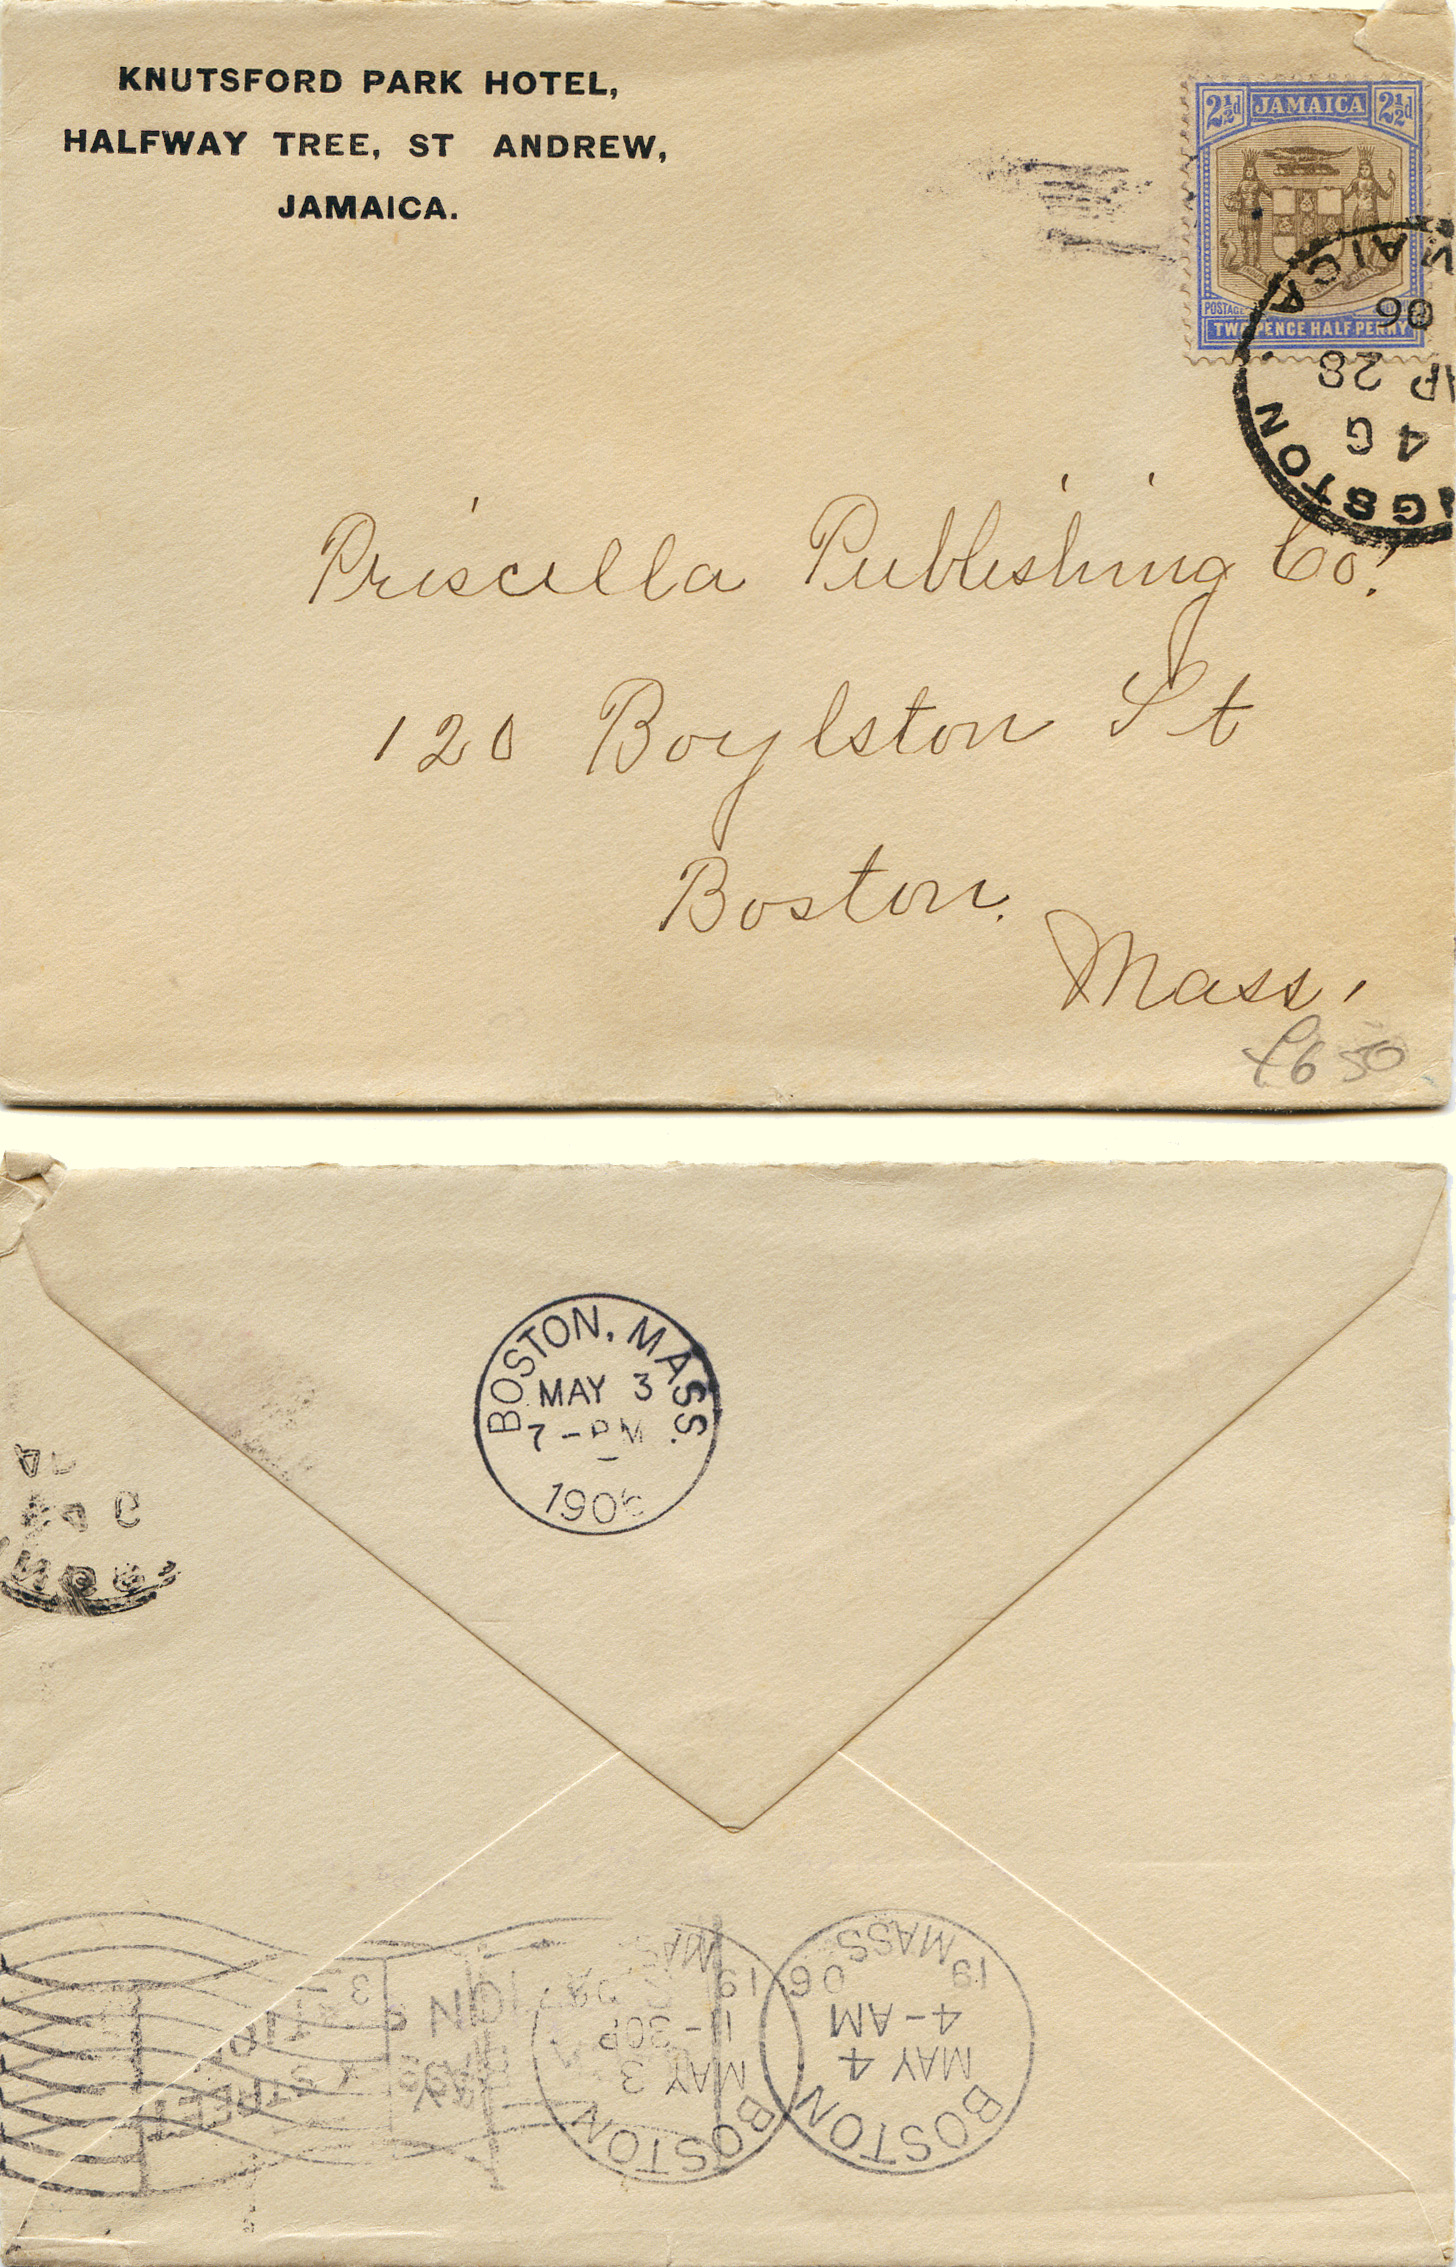 KNUTSFORD PARK HOTEL,
HALFWAY TREE, ST ANDREW,
JAMAICA.
2½d JAMAICA 2½d
POSTAGE
TWO PENCE HALF PENNY
JAICA
06
AP 28
4 G
GSTON
Priscilla Publishing Co.
120 Boylston St
Boston.
Mass.
£6 50
BOSTON, MASS.
MAY 3
7-PM
1906
BOSTON
MAY 3
11-30P
19
BOSTON
MAY 4
4-AM
19 06
MASS
STREET